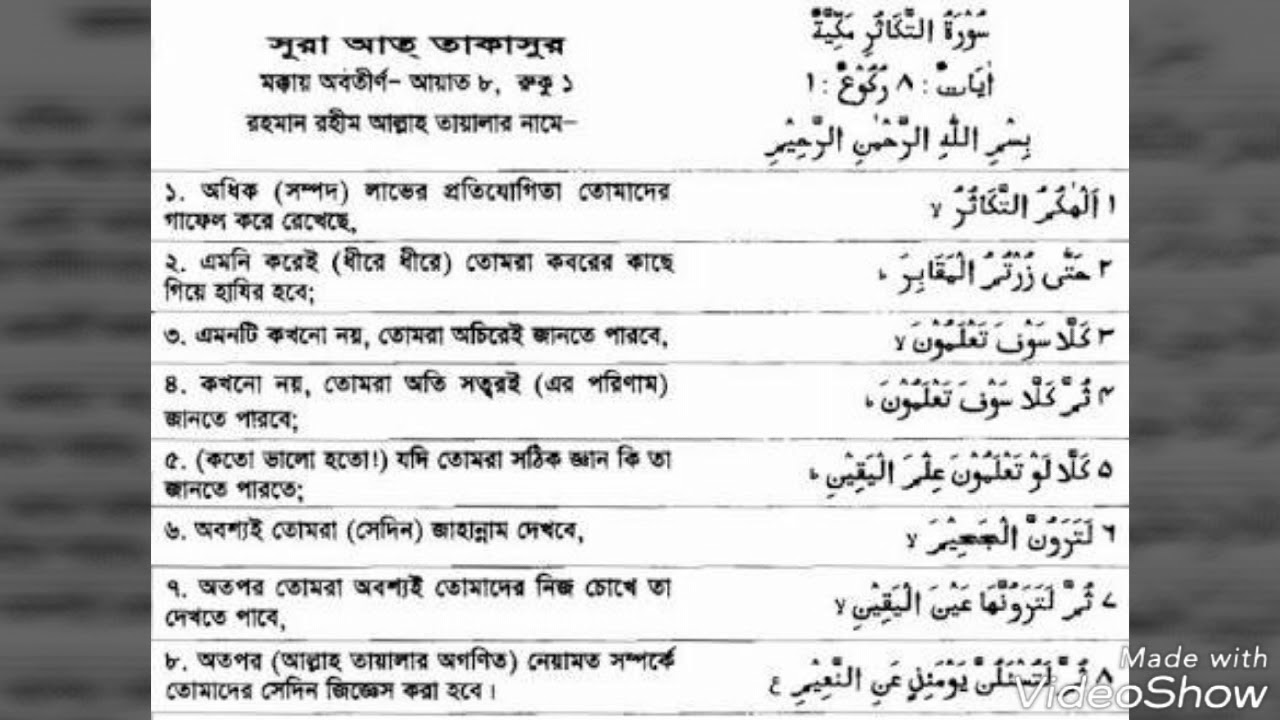 সূরা আত্ তাকাসুর
মক্কায় অবতীর্ণ- আয়াত ৮, রুকু ১
রহমান রহীম আল্লাহ তায়ালার নামে-
سُوْرَةُ التَّكَاثُرِ مَكِّيَّةٌ
اٰيَاتٌ : ٨ رُكُوْعٌ : ١
بِسْمِ اللّٰهِ الرَّحْمٰنِ الرَّحِيْمِ
১. অধিক (সম্পদ) লাভের প্রতিযোগিতা তোমাদের
গাফেল করে রেখেছে,
١ اَلْهٰكُمُ التَّكَاثُرُ لا
২. এমনি করেই (ধীরে ধীরে) তোমরা কবরের কাছে
গিয়ে হাযির হবে;
٢ حَتّٰى زُرْتُمُ الْمَقَابِرَ ط
৩. এমনটি কখনো নয়, তোমরা অচিরেই জানতে পারবে,
٣ كَلَّا سَوْفَ تَعْلَمُوْنَ لا
৪. কখনো নয়, তোমরা অতি সত্বরই (এর পরিণাম)
জানতে পারবে;
٤ ثُمَّ كَلَّا سَوْفَ تَعْلَمُوْنَ ط
৫. (কতো ভালো হতো!) যদি তোমরা সঠিক জ্ঞান কি তা
জানতে পারতে;
٥ كَلَّا لَوْ تَعْلَمُوْنَ عِلْمَ الْيَقِيْنِ ط
৬. অবশ্যই তোমরা (সেদিন) জাহান্নাম দেখবে,
٦ لَتَرَوُنَّ الْجَحِيْمَ لا
৭. অতপর তোমরা অবশ্যই তোমাদের নিজ চোখে তা
দেখতে পাবে,
٧ ثُمَّ لَتَرَوُنَّهَا عَيْنَ الْيَقِيْنِ لا
৮. অতপর (আল্লাহ তায়ালার অগণিত) নেয়ামত সম্পর্কে
তোমাদের সেদিন জিজ্ঞেস করা হবে।
٨ ثُمَّ لَتُسْئَلُنَّ يَوْمَئِذٍ عَنِ النَّعِيْمِ ع
Made with
VideoShow